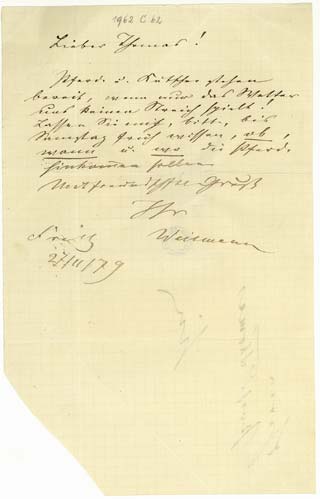 1962 C 62
Lieber Thomas!
Pferd u. Kutscher stehen
bereit, wenn nur das Wetter
uns keinen Streich spielt!
Lassen Sie mich, bitte, bis
Samstag früh wissen, ob,
wann u. wo die Pferde
hinkommen sollen
Mit Gruß
Ihr
Weitmann
27/11/79